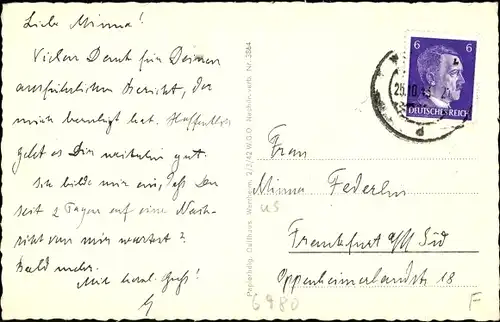 Liebe Minna!
Vielen Dank für Deinen
ausführlichen Bericht, der
mich beruhigt hat. Hoffentlich
geht es Dir weiterhin gut.
Ich bilde mir ein, daß Du
seit 2 Tagen auf eine Nach-
richt von mir wartest?
Bald mehr.
Mit herzl. Gruß!
Papierhdlg. Dallhaus, Wertheim. 2/2/42 W.D.O. Nachdr. verb. Nr. 3864
6
6
25.10.43
DEUTSCHES REICH
d
Frau
Minna Federlin
Frankfurt a/M Süd
Oppenheimerlandstr 18
6980
F